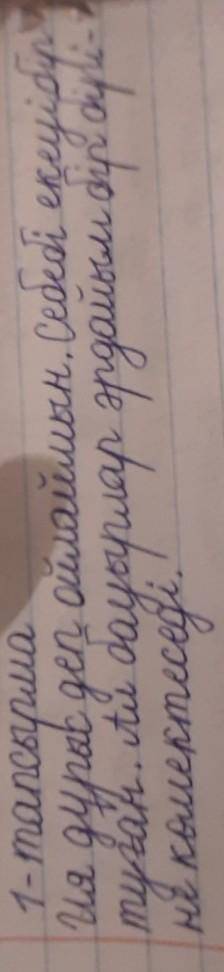 1-тапсырма
Ия дұрыс деп ойлаймын. Себебі екеуі бір
туған. Ал бауырлар әрдайым бір бірі-
не көмектеседі.